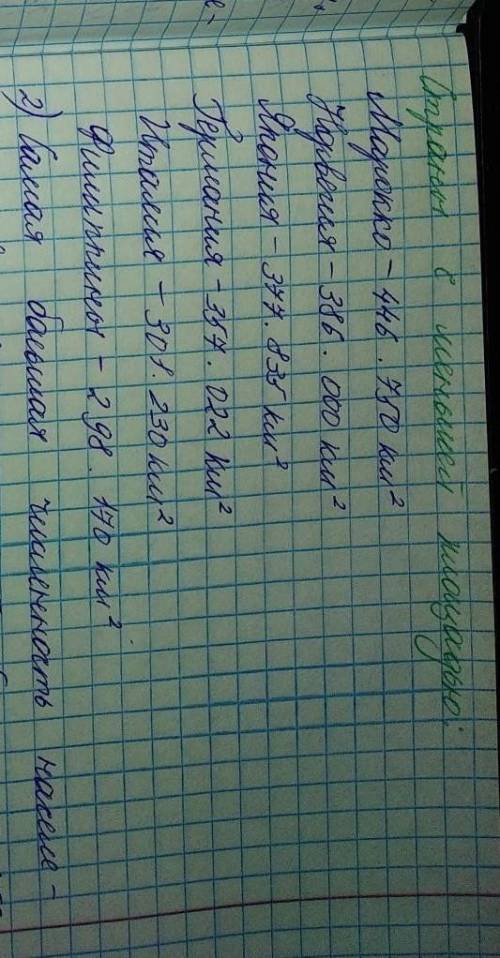 Страны с меньшей площадью:
Марокко - 446.750 км²
Норвегия - 386.000 км²
Япония - 377.835 км²
Германия - 357.022 км²
Италия - 301.230 км²
Филиппины - 298.170 км²
2) Самая большая численность населе-